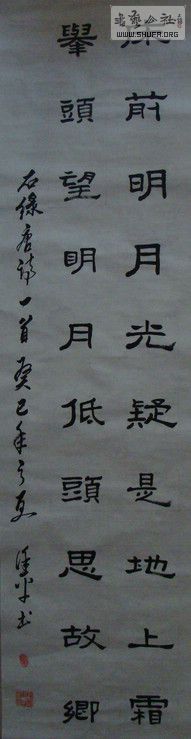 床前明月光疑是地上霜
舉頭望明月低頭思故鄉
右錄唐詩一首癸巳年之夏
書藝公社
WWW.SHUFA.ORG